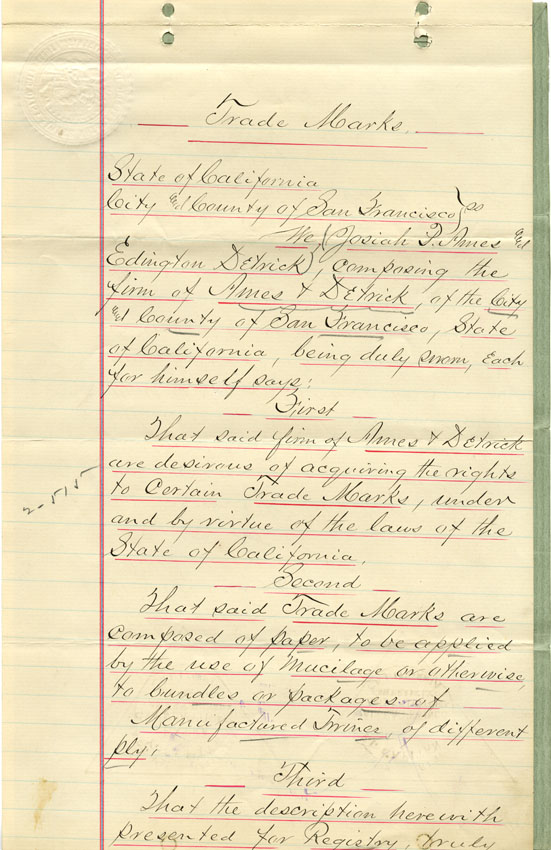 Trade Marks.
State of California
City and County of San Francisco } ss
We, (Josiah P. Ames and
Edington Detrick), composing the
firm of Ames & Detrick, of the City
and County of San Francisco, State
of California, being duly sworn, each
for himself says:
First
That said firm of Ames & Detrick
are desirous of acquiring the rights
to Certain Trade Marks, under
and by virtue of the laws of the
State of California.
2-5/85
Second
That said Trade Marks are
composed of paper, to be applied
by the use of Mucilage or otherwise,
to bundles or packages of
Manufactured Twines, of different
ply.
Third
That the description herewith
presented for Registry, truly